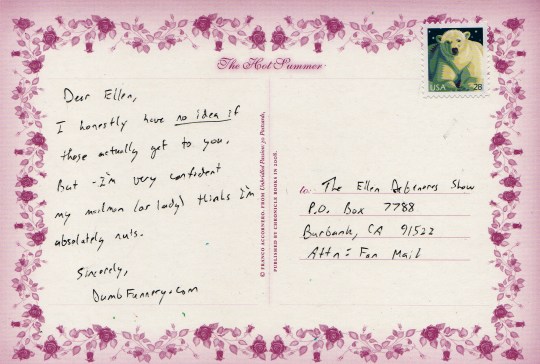 The Hot Summer
Dear Ellen,
I honestly have no idea if
these actually get to you.
But I'm very confident
my mailman (or lady) thinks I'm
absolutely nuts.
Sincerely,
DumbFunnery.com
© FRANCO ACCORNERO, FROM Unbridled Passion: 30 Postcards,
PUBLISHED BY CHRONICLE BOOKS IN 2008.
USA 28
to: The Ellen Degeneres Show
P.O. Box 7788
Burbank, CA 91522
Attn: Fan Mail